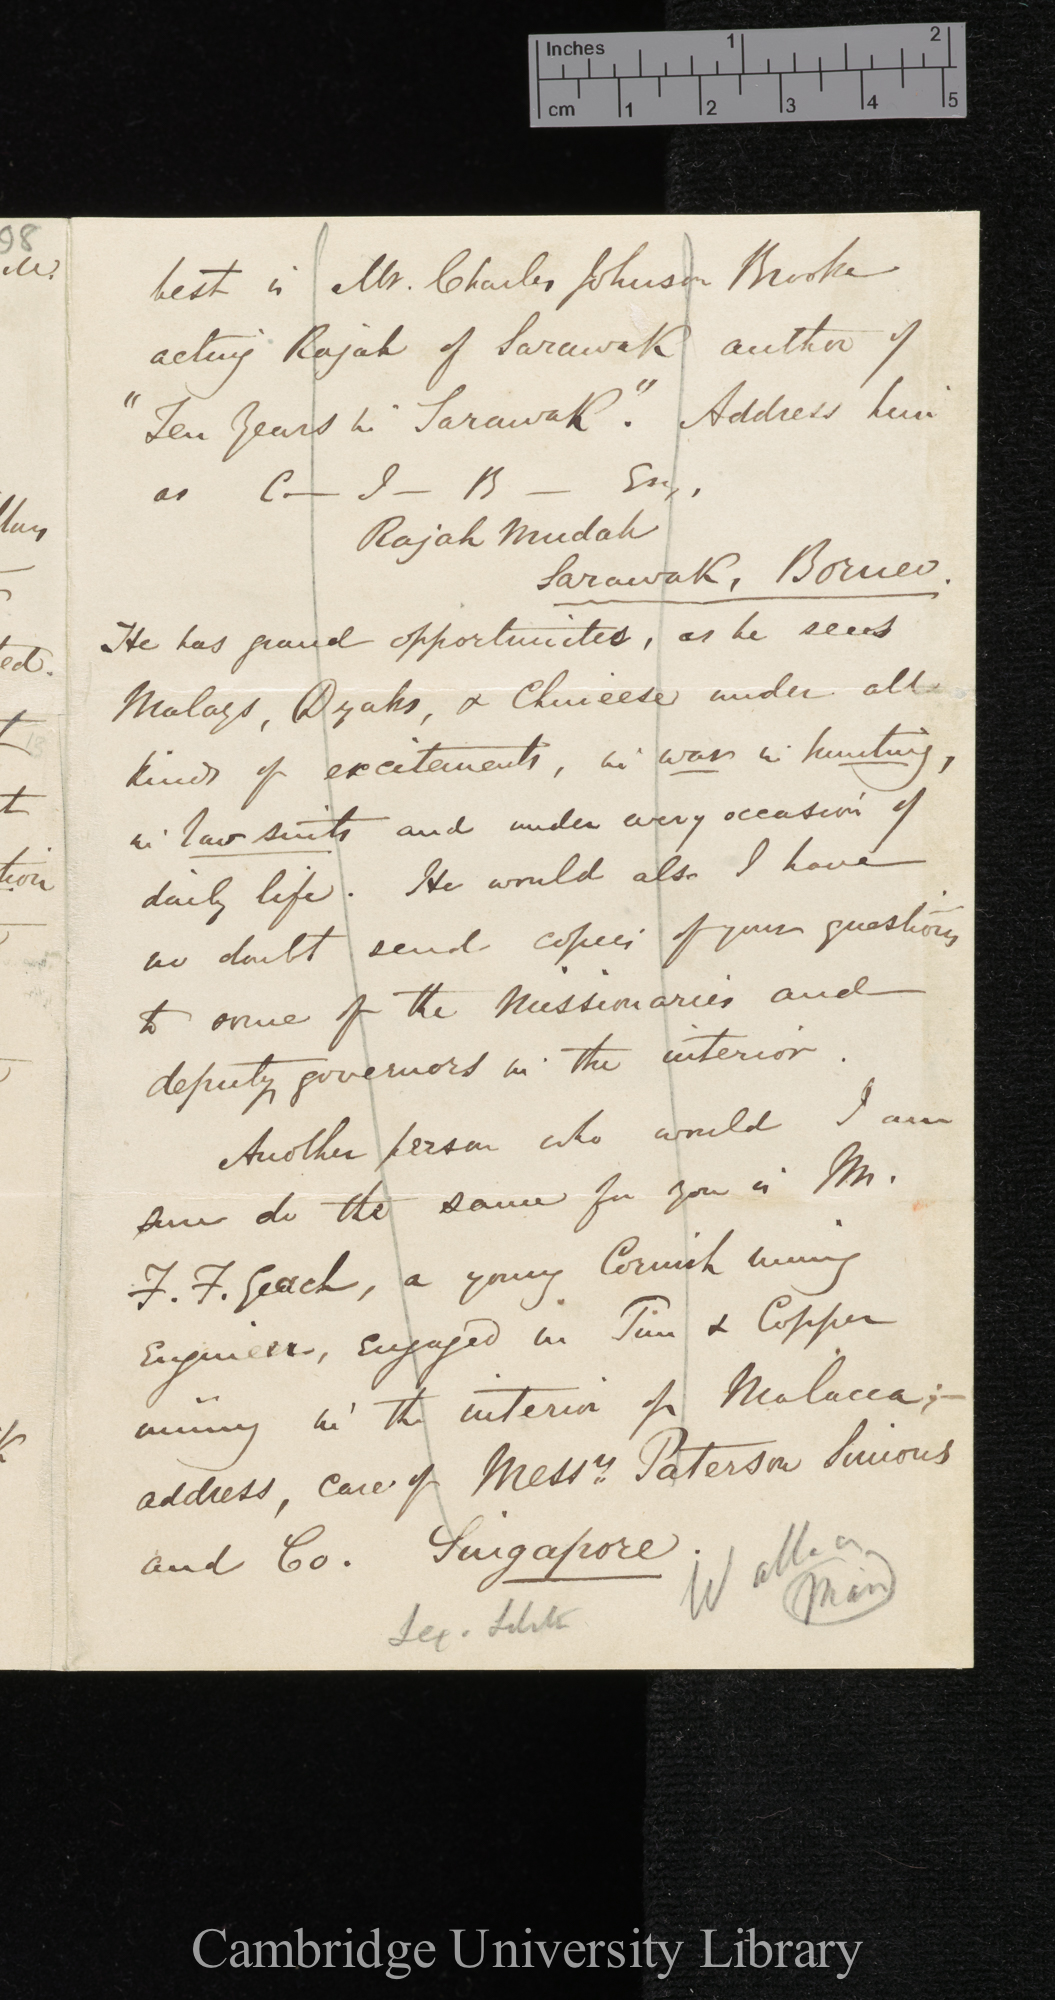 Inches 1 2
cm 1 2 3 4 5
98
best is Mr. Charles Johnson Brooke
acting Rajah of Sarawak author of
"Ten Years in Sarawak". Address him
as C— J— B— Esq.,
Rajah Mudah
Sarawak, Borneo.
He has grand opportunites, as he sees
Malays, Dyaks, & Chineese under all
kinds of excitements, in war in hunting,
in law suits and under every occasion of
daily life. He would also I have
no doubt send copies of your questions
to some of the Missionaries and
deputy governors in the interior.
Another person who would I am
sure do the same for you is Mr.
F. F. Geach, a young Cornish mining
Engineer, engaged in Tin & Copper
mining in the interior of Malacca;—
address, care of Messrs. Paterson Simons
and Co. Singapore.
Man
Sex.
ted.
tion
Cambridge University Library